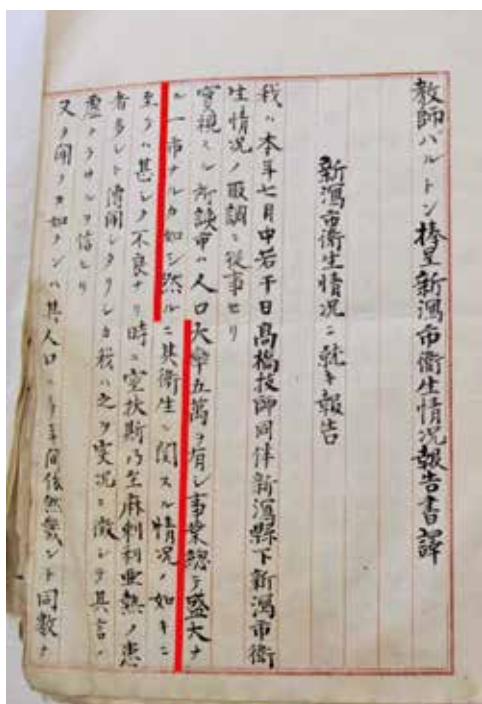 教師バルトン捧呈新瀉市衛生情况報告書譯
新瀉市衛生情况ニ就キ報告
我ハ本年七月中若干日髙橋技師同伴新瀉縣下新瀉市衛
生情况ノ取調ニ從事セリ
實視スル所該市ハ人口大率五萬ヲ有シ事業総テ盛大ナ
ル一市ナルカ如シ然ルニ其衛生ニ関スル情况ノ如キニ
至テハ甚シク不良ナリ時ニ窒扶斯乃至麻剌利亜熱ノ患
者多シト傳聞シタリシカ我ハ之ヲ実况ニ徴シテ其言ノ
虚ナラサルヲ信セリ
又タ聞ク カ如クンハ其人口ハ多年間依然殆ント同数ナ